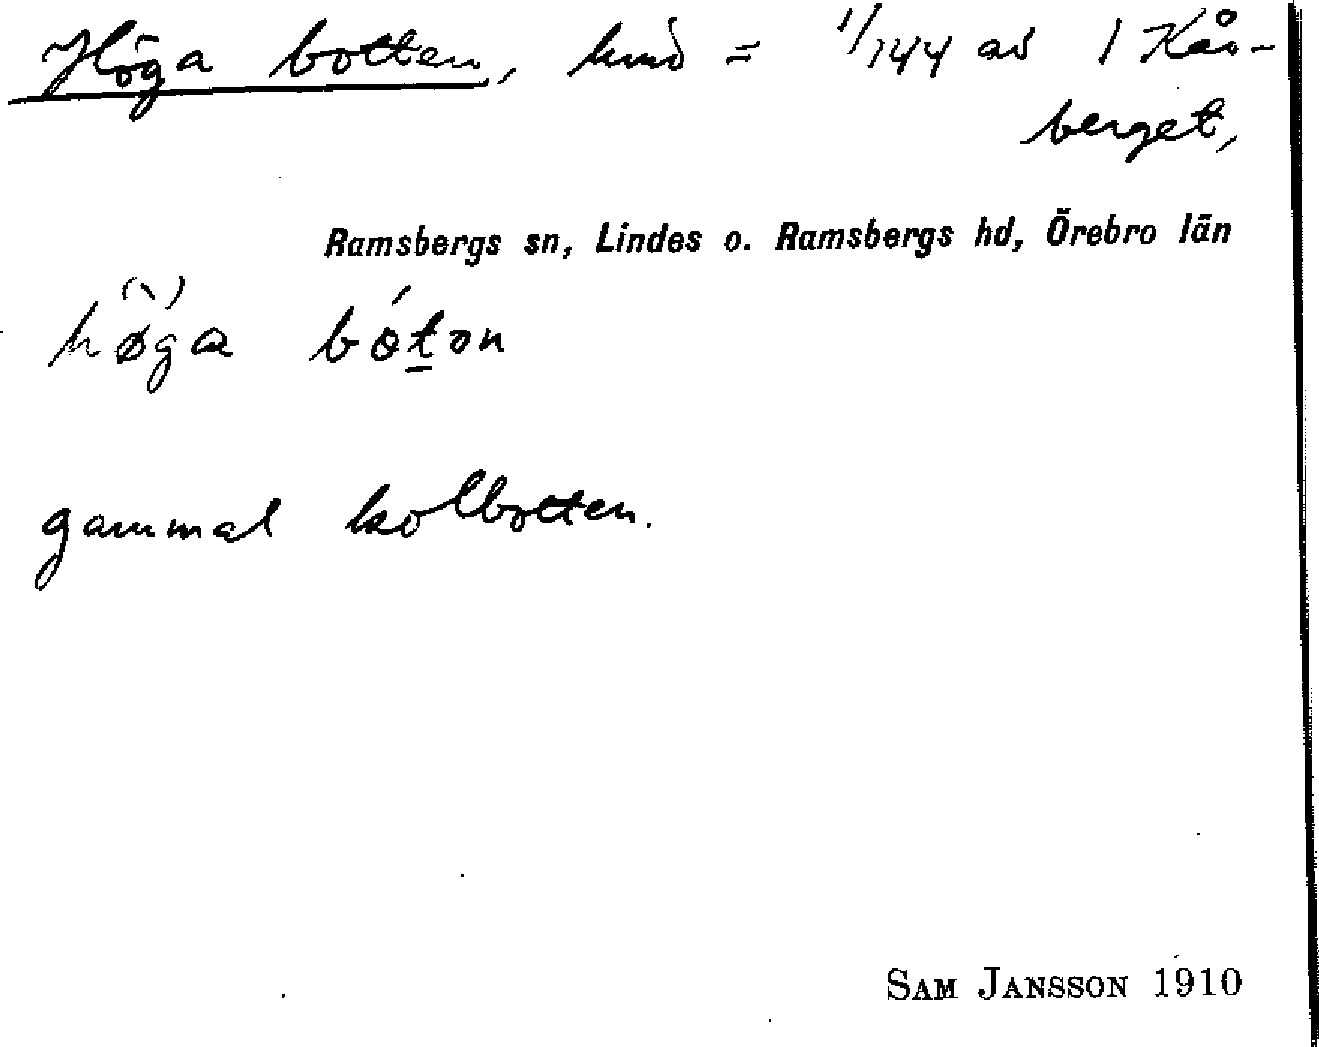 Höga botten, hmd = 1/144 av 1 Kås-
berget,
Ramsbergs sn, Lindes o. Ramsbergs hd, Örebro län
høga bót̲on
gammal kolbotten.
SAM JANSSON 1910